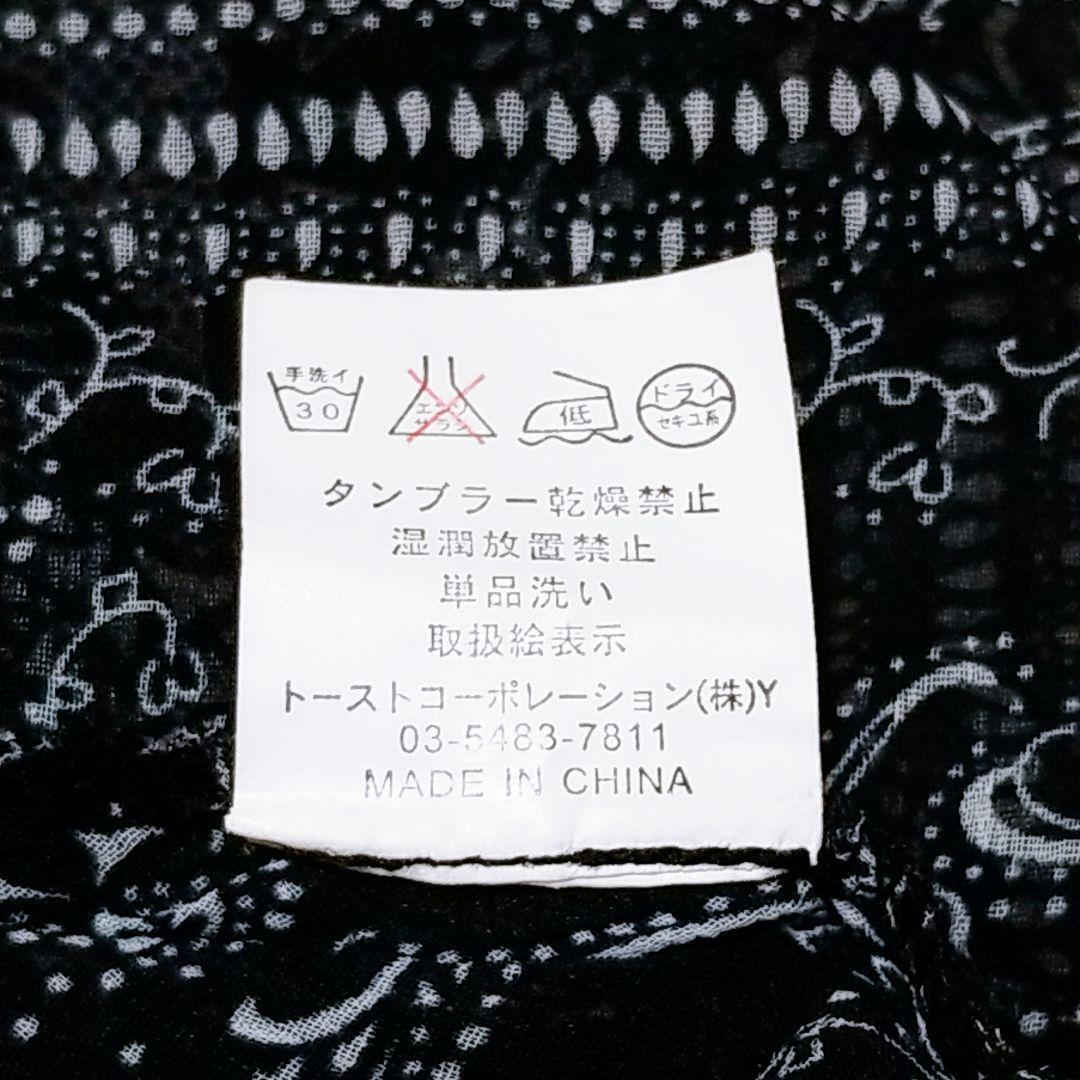 手洗イ
30
エンソ
サラシ
低
ドライ
セキユ系
タンブラー乾燥禁止
湿潤放置禁止
単品洗い
取扱絵表示
トーストコーポレーション(株)Y
03-5483-7811
MADE IN CHINA